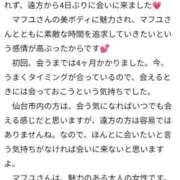 れず、遠方から4日ぶりに会いに来ました💗
マフユさんの美ボディに魅力され、マフユさ
んとともに素敵な時間を追求していきたいとい
う感情が高ぶったからです💕
初回、会うまでは4ヶ月かかりました。今
、うまくタイミングが合っているので、会えるとき
には会っておこうという気持ちでした。
仙台市内の方は、会う気になればいつでも会
える感じだと思いますが、遠方の方は容易では
ありませんね。なので、ほんとに会いたいと言
う気持ちがなければ会いに来ないと思います
よ。
マフユさんは、魅力のある大人の女性です。